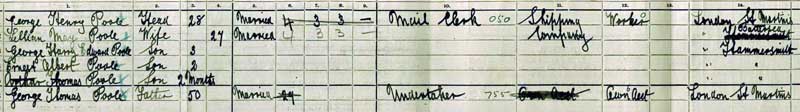 1. 2. 3. 4. 5. 6. 7. 8. 9. 10. 11. 12. 13. 14.
George Henry Poole Head 28 Married 4 3 3 — Mail Clerk 050 Shipping Worker London St Martins
Lillian May Poole Wife 27 Married 4 3 3 — Company " Battersea
George Henry Edward Poole Son 3 " Hammersmith
Ernest Albert Poole Son 2 "
Arthur Thomas Poole Son 2 Months "
George Thomas Poole Father 50 Married 29 Undertaker 755 Own Acct Own Acct London St Martins